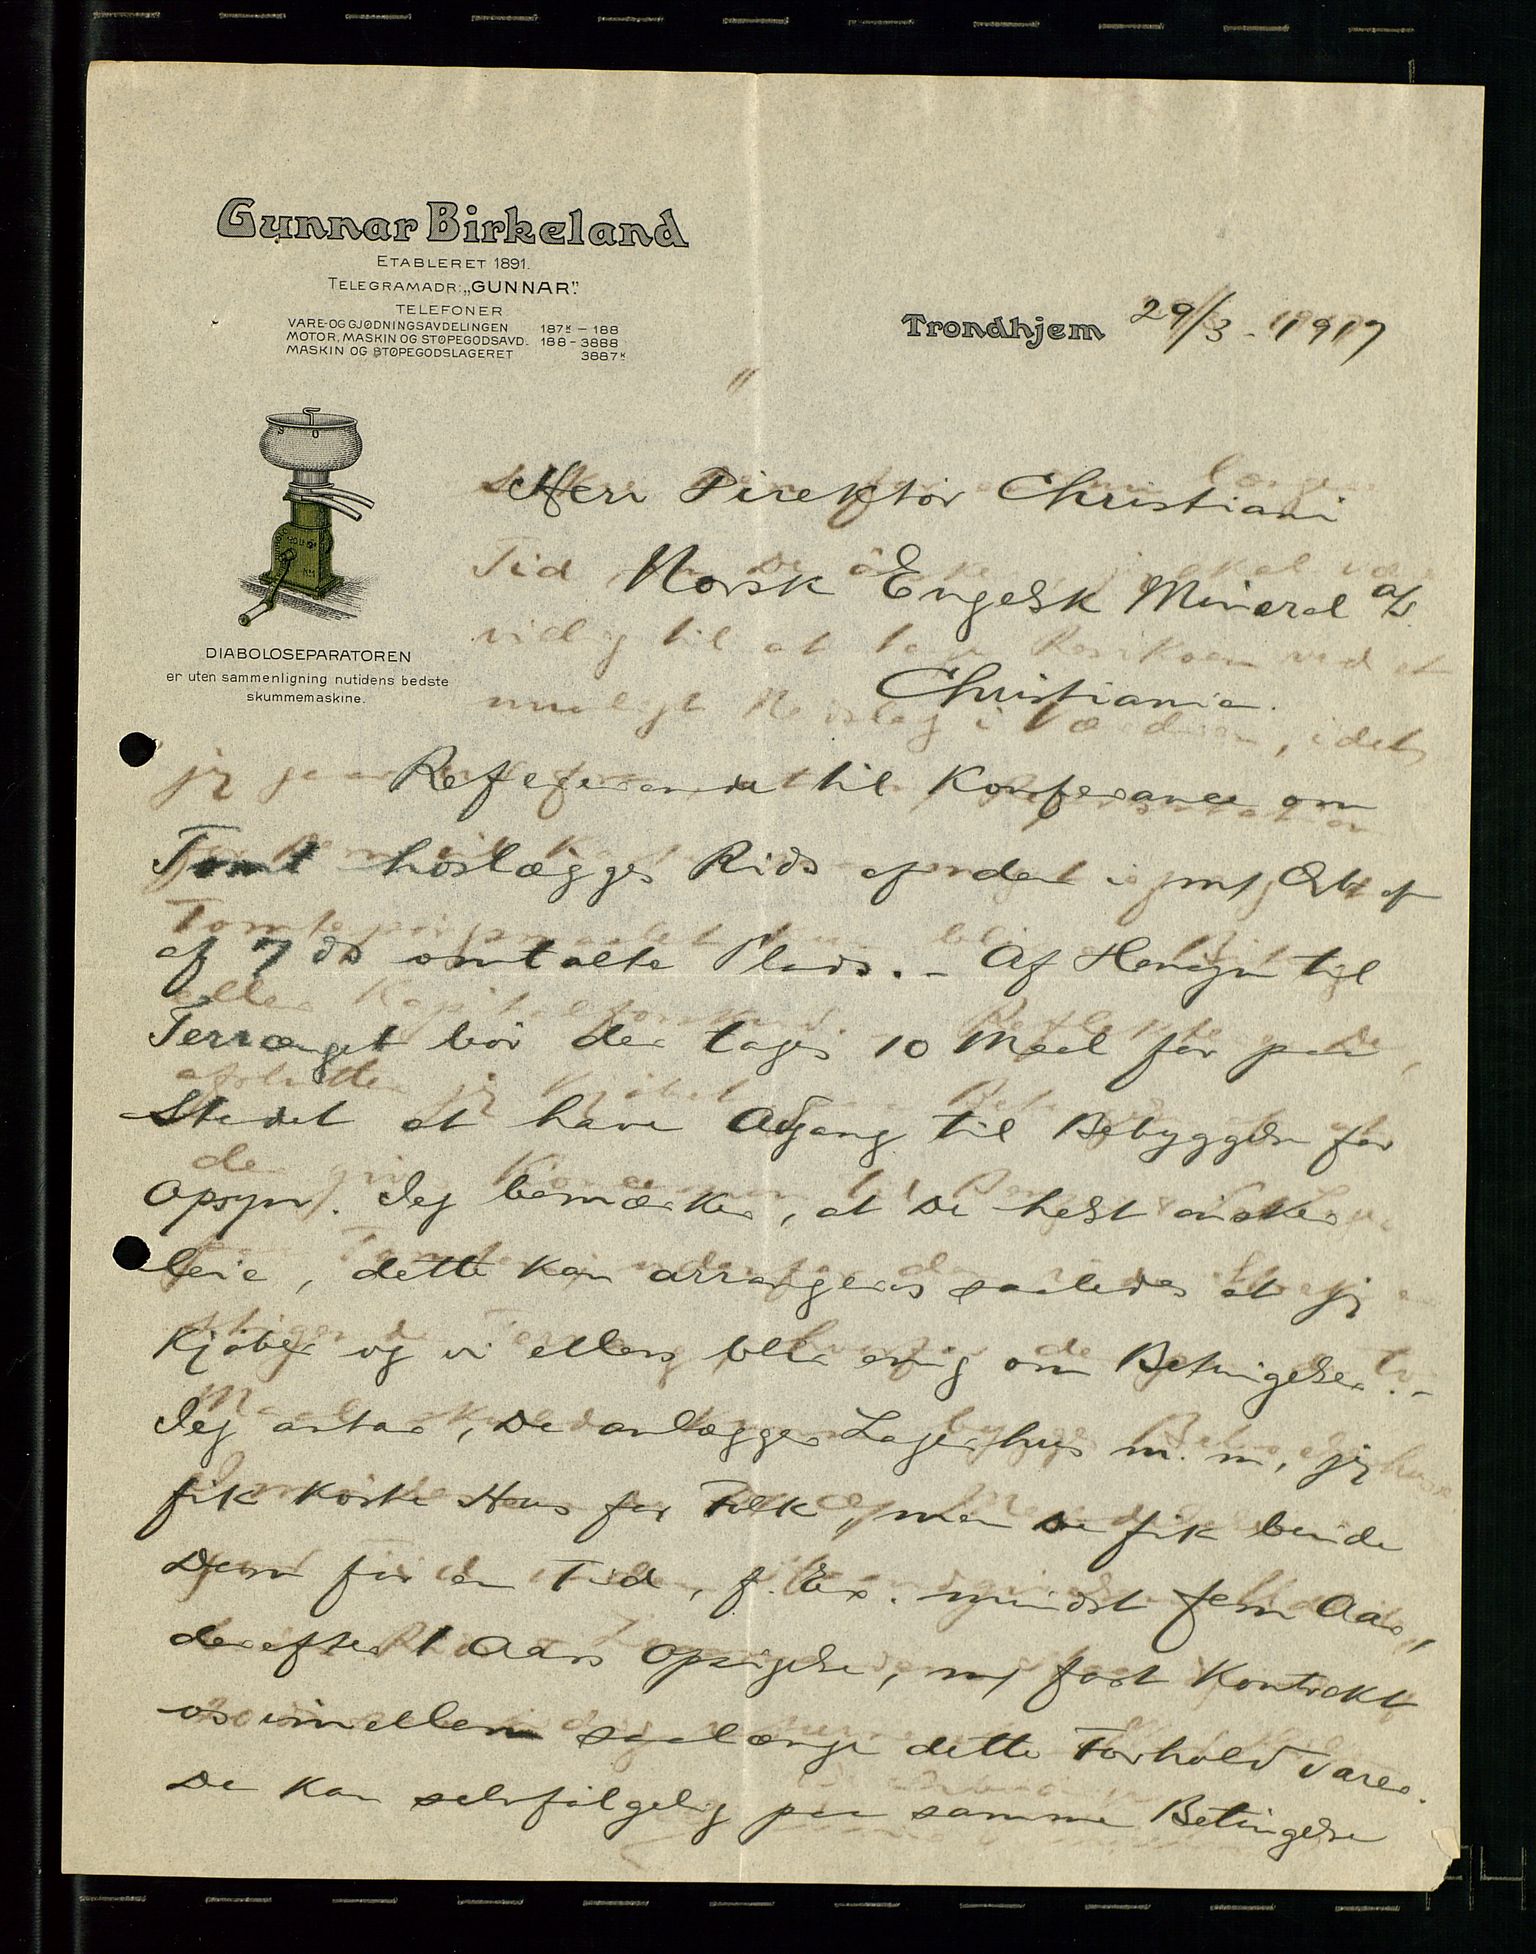 Gunnar Birkeland
ETABLERET 1891.
TELEGRAMADR: „GUNNAR".
TELEFONER
VARE- OG GJØDNINGSAVDELINGEN 187ᴷ — 188
MOTOR, MASKIN OG STØPEGODSAVD. 188 - 3888
MASKIN OG STØPEGODSLAGERET 3887ᴷ
Trondhjem 29/3 - 1917
DIABOLOSEPARATOREN
er uten sammenligning nutidens bedste
skummemaskine.
Herr Direktör Christiani
Norsk Engelsk Mineral a/s.
Christiania.
Refererende til Konferance om
Tomt hoslægges Rids af den i m/ af
af 7 ds omtalte Plads. - Af Hensyn til
Terrænget bör der tages 10 Maal for paa
Stedet at have Adgang til Bebyggelse for
Opsyn. Jeg bemærker, at De helst önsker
leie, dette kan arrangeres saaledes at jeg
Kjöber og vi ellers blir enig om Betingelser. -
Jeg antar, De anlægger Lagerhus m. m, jeg
fik koste Hus for Folk, men De fik binde
Dem for en Tid, f. Ex. mindst fem Aar,
derefter 1 Aars Opsigelse, m/ fast Kontrakt
os imellem saalænge dette Forhold varer.
De kan selvfölgelig paa samme Betingelse